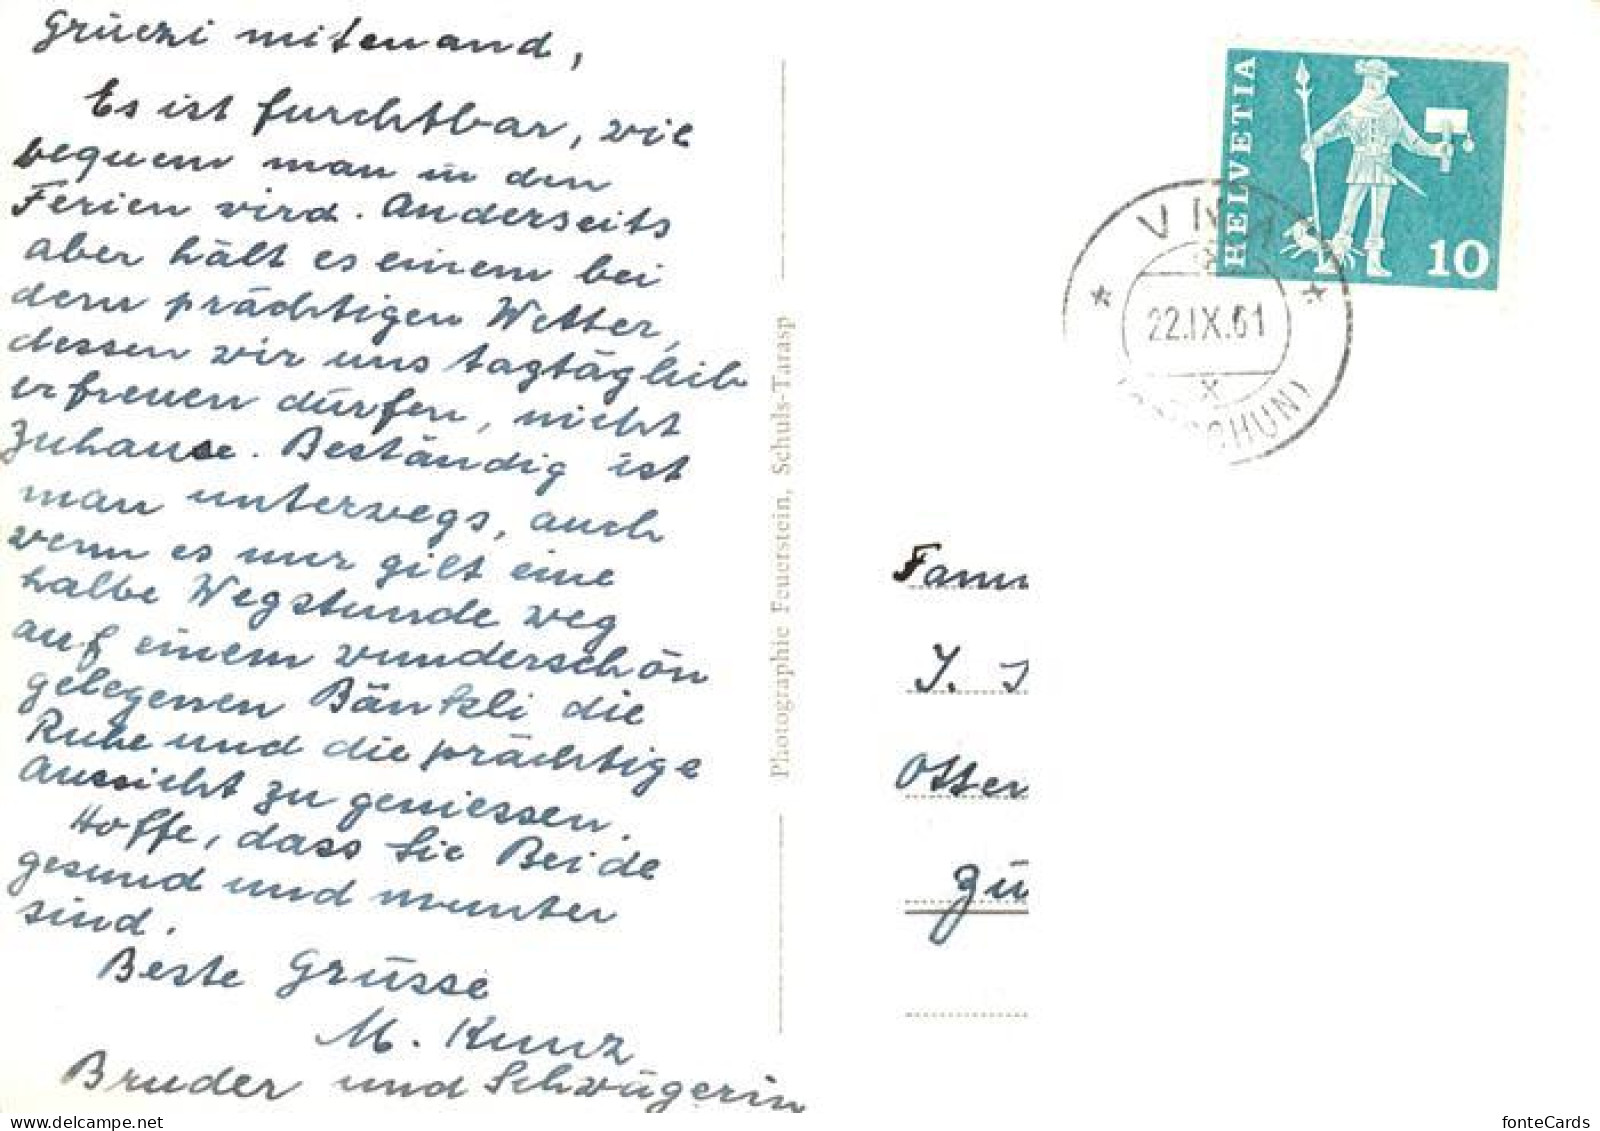 Grüezi mitenand,
Es ist furchtbar, wie
bequem man in den
Ferien wird. Anderseits
aber hält es einem bei
dem prächtigen Wetter,
dessen wir uns tagtäglich
erfreuen dürfen, nicht
zuhause. Beständig ist
man unterwegs, auch
wenn es nur gilt eine
halbe Wegstunde weg
auf einem wunderschön
gelegenen Bänkli die
Ruhe und die prächtige
Aussicht zu geniessen.
Hoffe, dass Sie Beide
gesund und munter
sind.
Beste Grüsse
M. Kunz
Bruder und Schwägerin
Photographie Feuerstein, Schuls-Tarasp
HELVETIA
10
22.IX.61
Fam
J.
Otten
Zü
fonteCards